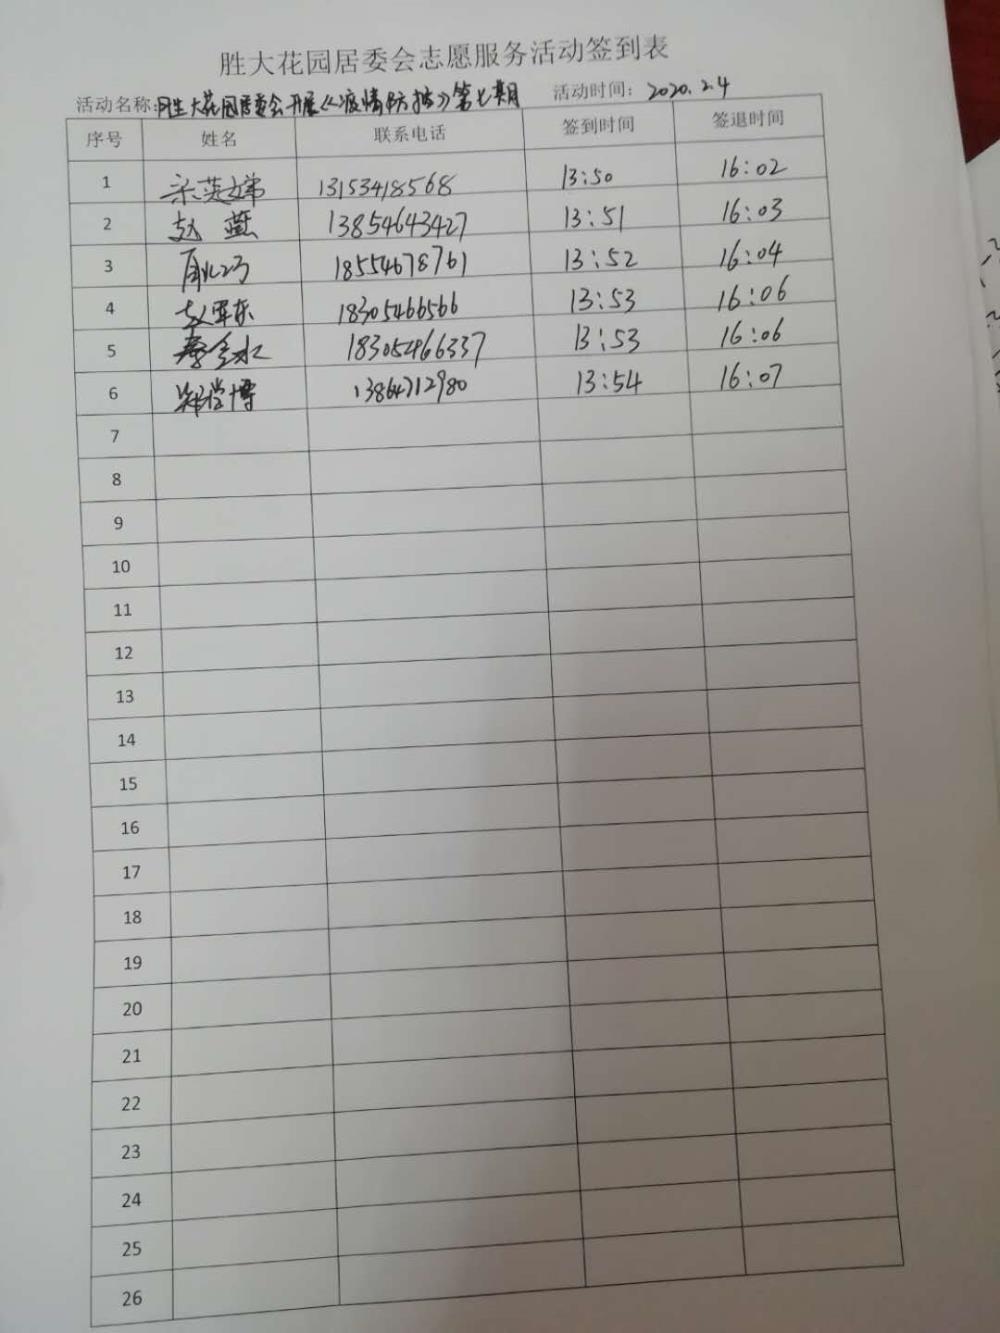 胜大花园居委会志愿服务活动签到表
活动名称:胜大花园居委会开展《疫情防控》第七期 活动时间: 2020.2.4
序号 姓名 联系电话 签到时间 签退时间
1 宋英娣 13153418568 13:50 16:02
2 赵燕 13854643427 13:51 16:03
3 18554678761 13:52 16:04
4 赵军东 18305466566 13:53 16:06
5 18305466337 13:53 16:06
6 13864712980 13:54 16:07
7
8
9
10
11
12
13
14
15
16
17
18
19
20
21
22
23
24
25
26